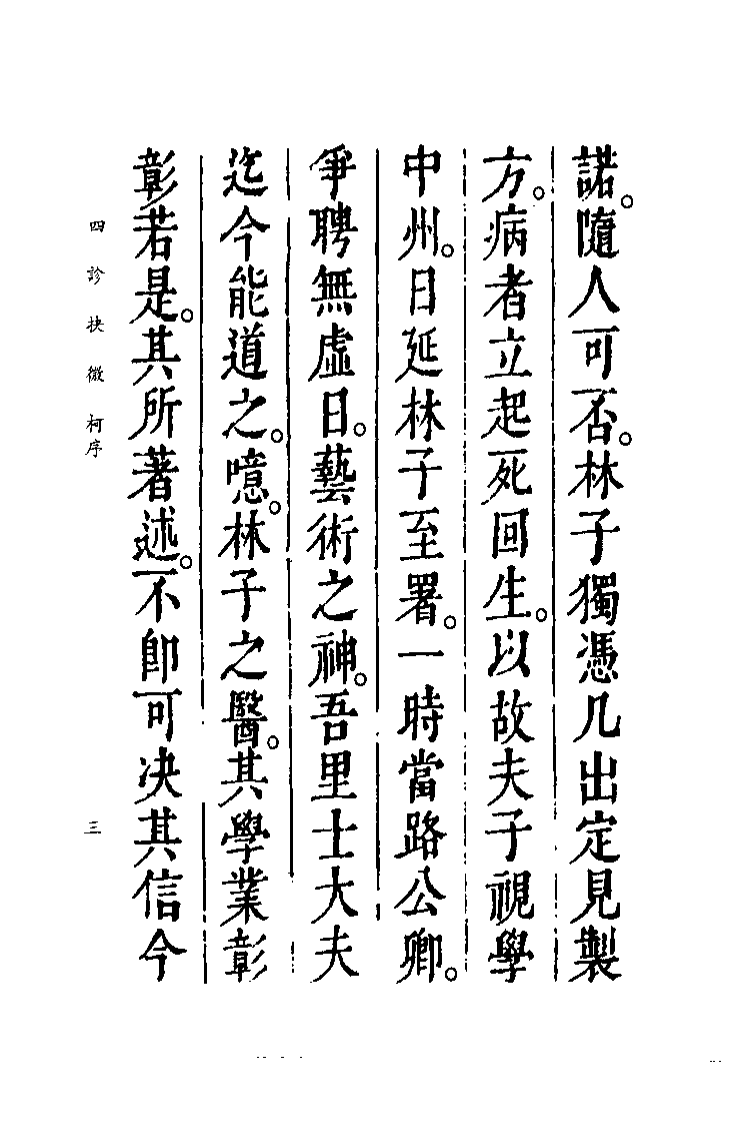 諾。隨人可否。林子獨憑几出定見製
方。病者立起死回生。以故夫子視學
中州。日延林子至署。一時當路公卿。
爭聘無虛日。藝術之神。吾里士大夫
迄今能道之。噫。林子之醫。其學業彰
彰若是。其所著述。不卽可决其信今
四診抉微 柯序
三